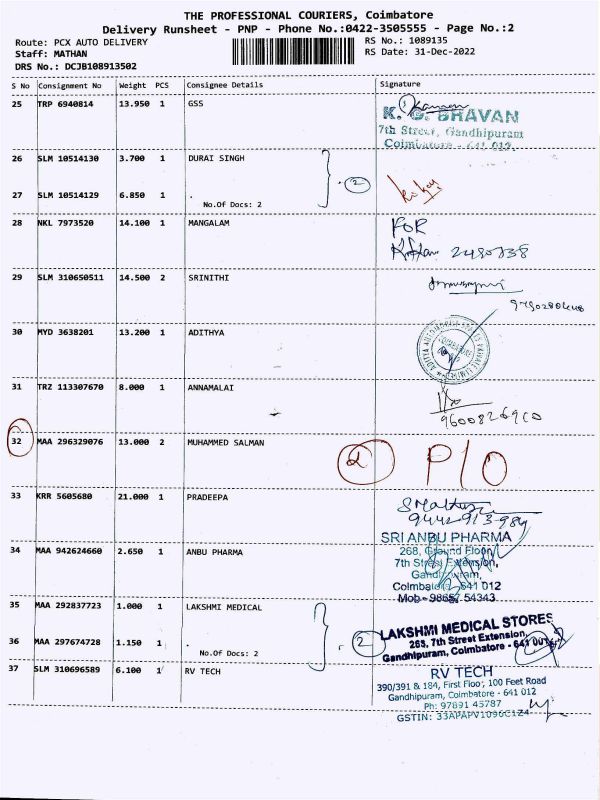 THE PROFESSIONAL COURIERS, Coimbatore
Delivery Runsheet - PNP - Phone No.:0422-3505555 - Page No.:2
Route: PCX AUTO DELIVERY
RS No.: 1089135
Staff: MATHAN
RS Date: 31-Dec-2022
DRS No.: DCJB108913502
S No Consignment No Weight PCS Consignee Details Signature
25 TRP 6940814 13.950 1 GSS
K. G. BHAVAN
7th Street, Gandhipuram
Coimbatore - 641 012.
26 SLM 10514130 3.700 1 DURAI SINGH
2
27 SLM 10514129 6.850 1 .
No.Of Docs: 2
28 NKL 7973520 14.100 1 MANGALAM
FOR
2480738
29 SLM 310650511 14.500 2 SRINITHI
30 MYD 3638201 13.200 1 ADITHYA
COIMBATORE
31 TRZ 113307670 8.000 1 ANNAMALAI
32 MAA 296329076 13.000 2 MUHAMMED SALMAN
2 P/O
33 KRR 5605680 21.000 1 PRADEEPA
9442-913-984
34 MAA 942624660 2.650 1 ANBU PHARMA
SRI ANBU PHARMA
268, Ground Floor,
7th Street Extension,
Gandhipuram,
Coimbatore - 641 012
Mob - 98657 54343
35 MAA 292837723 1.000 1 LAKSHMI MEDICAL
LAKSHMI MEDICAL STORES
263, 7th Street Extension,
Gandhipuram, Coimbatore - 641 012
2
36 MAA 297674728 1.150 1 .
No.Of Docs: 2
37 SLM 310696589 6.100 1 RV TECH
RV TECH
390/391 & 184, First Floor, 100 Feet Road
Gandhipuram, Coimbatore - 641 012
Ph: 97891 45787
GSTIN: 33APAPV1096C1Z4